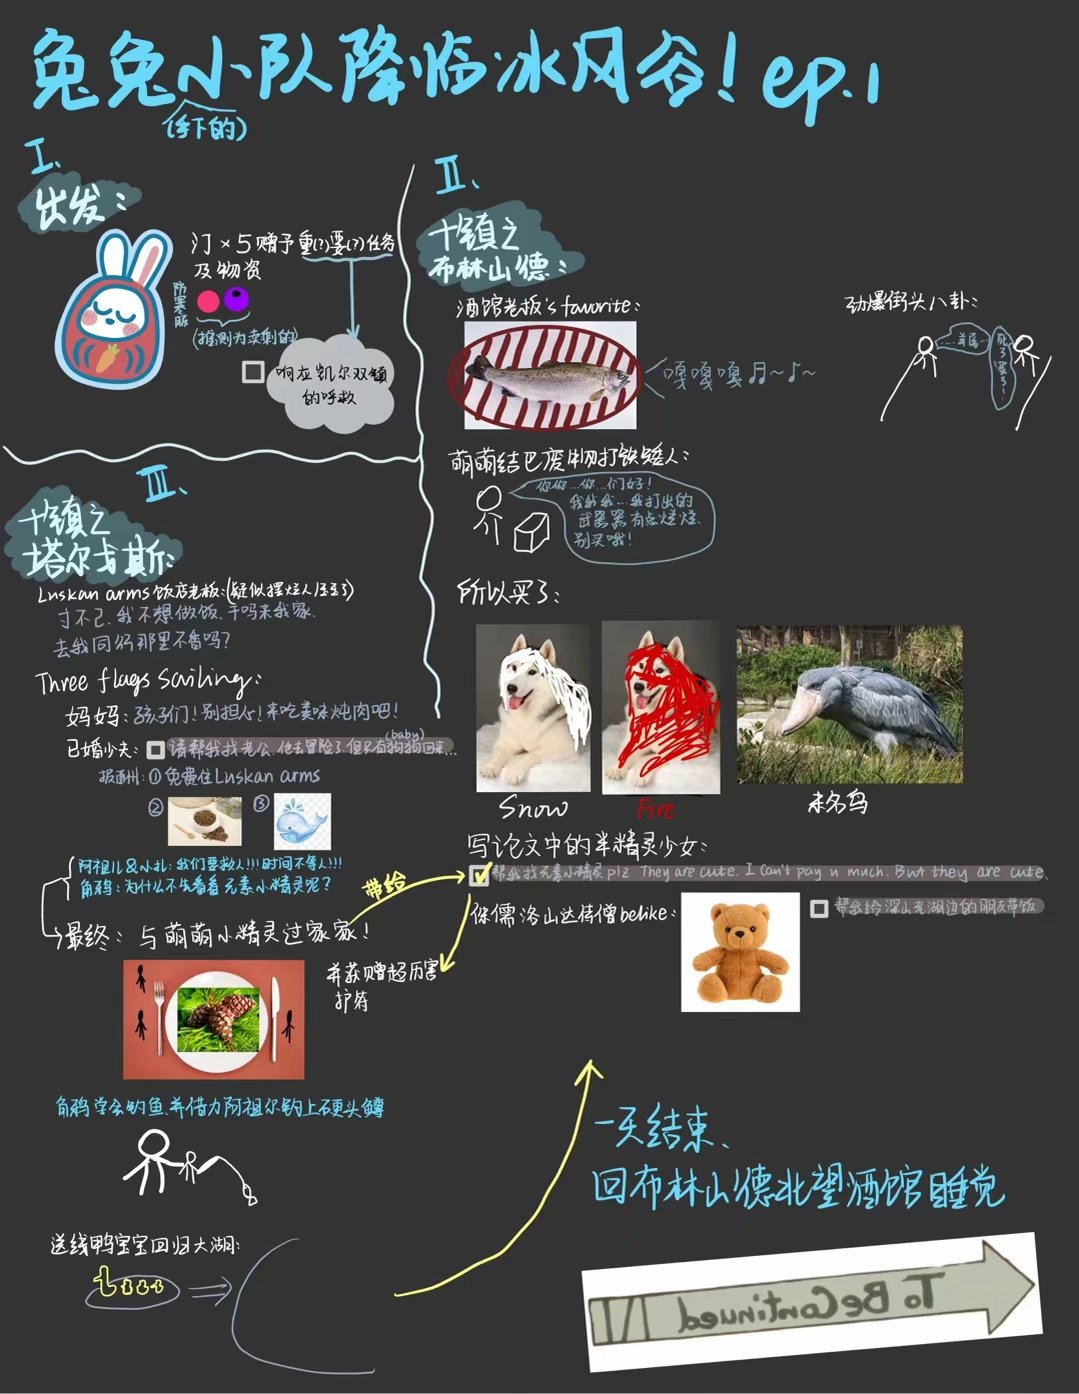 兔兔小队降临冰风谷！ep.1
(手下的)
I、
出发：
汀×5赠予重(?)要(?)任务
及物资
防寒服
(推测为卖剩的)
响应凯尔双镇
的呼救
II、
十镇之
布林山德：
酒馆老板's favorite：
嘎嘎嘎♬~♪~
劲爆街头八卦：
死了罢了！
萌萌结巴废物打铁矮人：
你你…你…们好！
我我我…我打出的
武器器有点烂烂、
别买哦！
所以买了：
Snow
Fire
未名鸟
写论文中的半精灵少女：
帮我找元素小精灵plz They are cute. I can't pay u much. But they are cute.
侏儒洛山达侍僧belike：
帮我给深山老湖边的朋友带饭
III、
十镇之
塔尔戈斯：
Luskan arms 饭店老板：(疑似摆烂人)
我不想做饭、干吗来我家、
去我同行那里不香吗？
Three flags sailing：
妈妈：孩子们！别担心！来吃美味炖肉吧！
(baby)
已婚少夫：请帮我找老公、他去冒险了但只有狗狗回来…
报酬州：①免费住Luskan arms
② ③
阿祖儿&小扎：我们要救人!!!时间不等人!!!
角鸦：为什么不先看看元素小精灵呢？
带给
最终：与萌萌小精灵过家家！
并获赠超厉害
护符
角鸦学会钓鱼、并借力阿祖尔钓上硬头鳟
送线鸭宝宝回归大湖：
一天结束、
回布林山德北望酒馆睡觉
To Be Continued